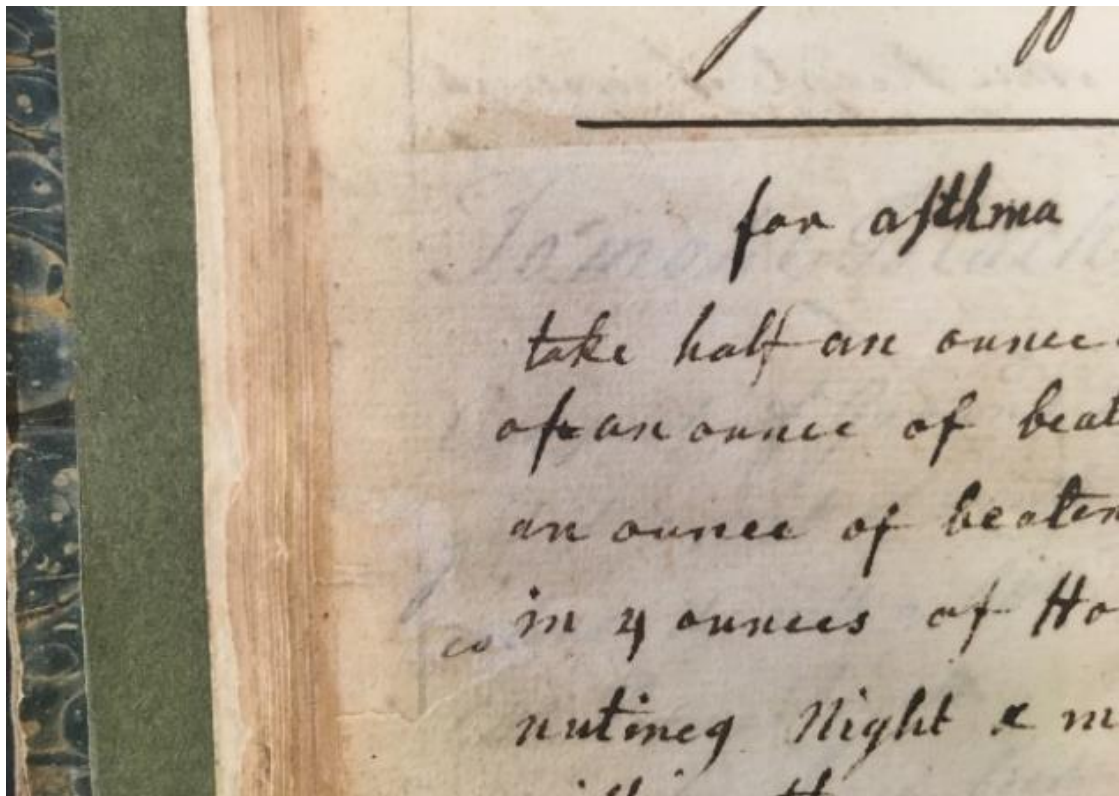 for aſthma
take half an ounce
of an ounce of beat
an ounce of beaten
in 4 ounces of Ho
co
nutmeg Night & m